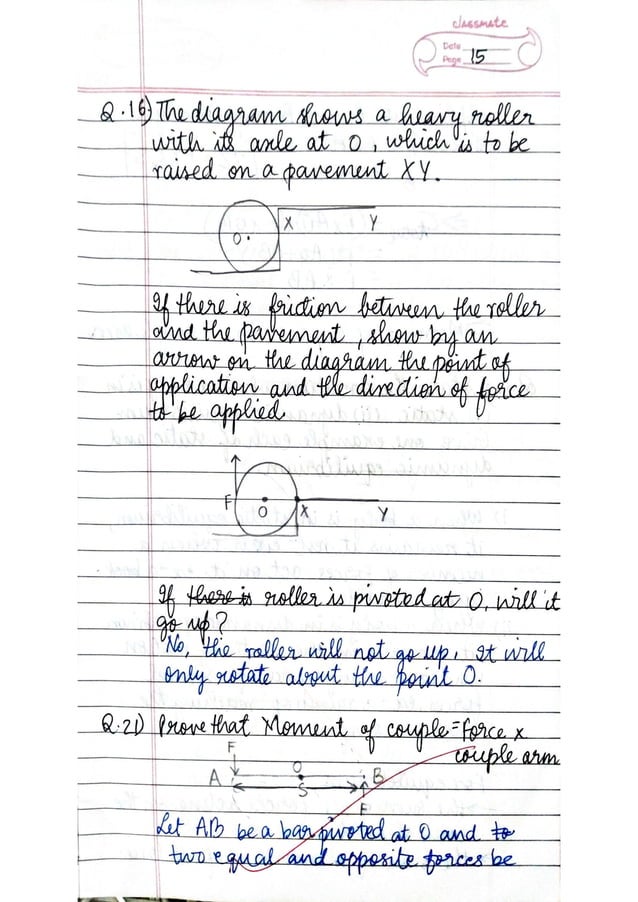 classmate
Date
Page 15
Q.16) The diagram shows a heavy roller
with its axle at O, which is to be
raised on a pavement XY.
O. X Y
If there is friction between the roller
and the pavement, show by an
arrow on the diagram the point of
application and the direction of force
to be applied
F O X Y
If there is roller is pivoted at O, will it
go up?
No, the roller will not go up. It will
only rotate about the point O.
Q.21) Prove that Moment of couple = Force x
couple arm
F
A O B
S
F
Let AB be a bar pivoted at O and to
two equal and opposite forces be